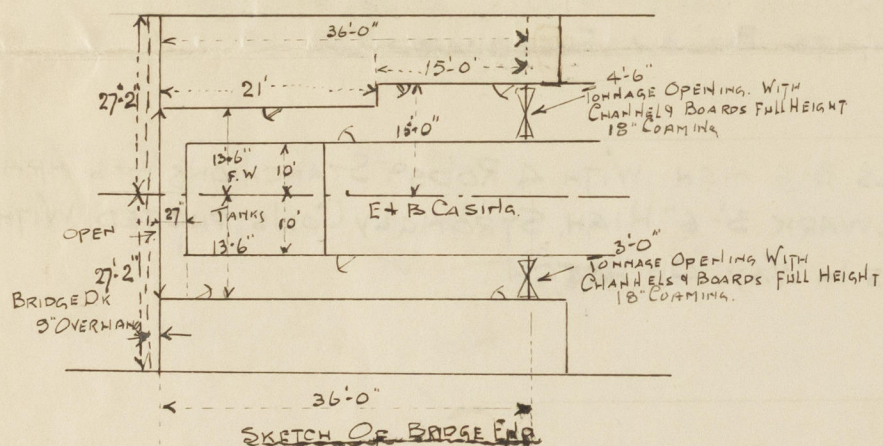 36'-0"
15'-0"
21'
27'-2"
4'-6"
TONNAGE OPENING. WITH
CHANNELS & BOARDS FULL HEIGHT
18" COAMING
15'-0"
13'-6"
10'
F.W
27"
TANKS
E & B CASING.
OPEN
10'
13'-6"
3'-0"
TONNAGE OPENING WITH
CHANNELS & BOARDS FULL HEIGHT
18" COAMING.
27'-2"
BRIDGE DK
9" OVERHANG
36'-0"
SKETCH OF BRIDGE END